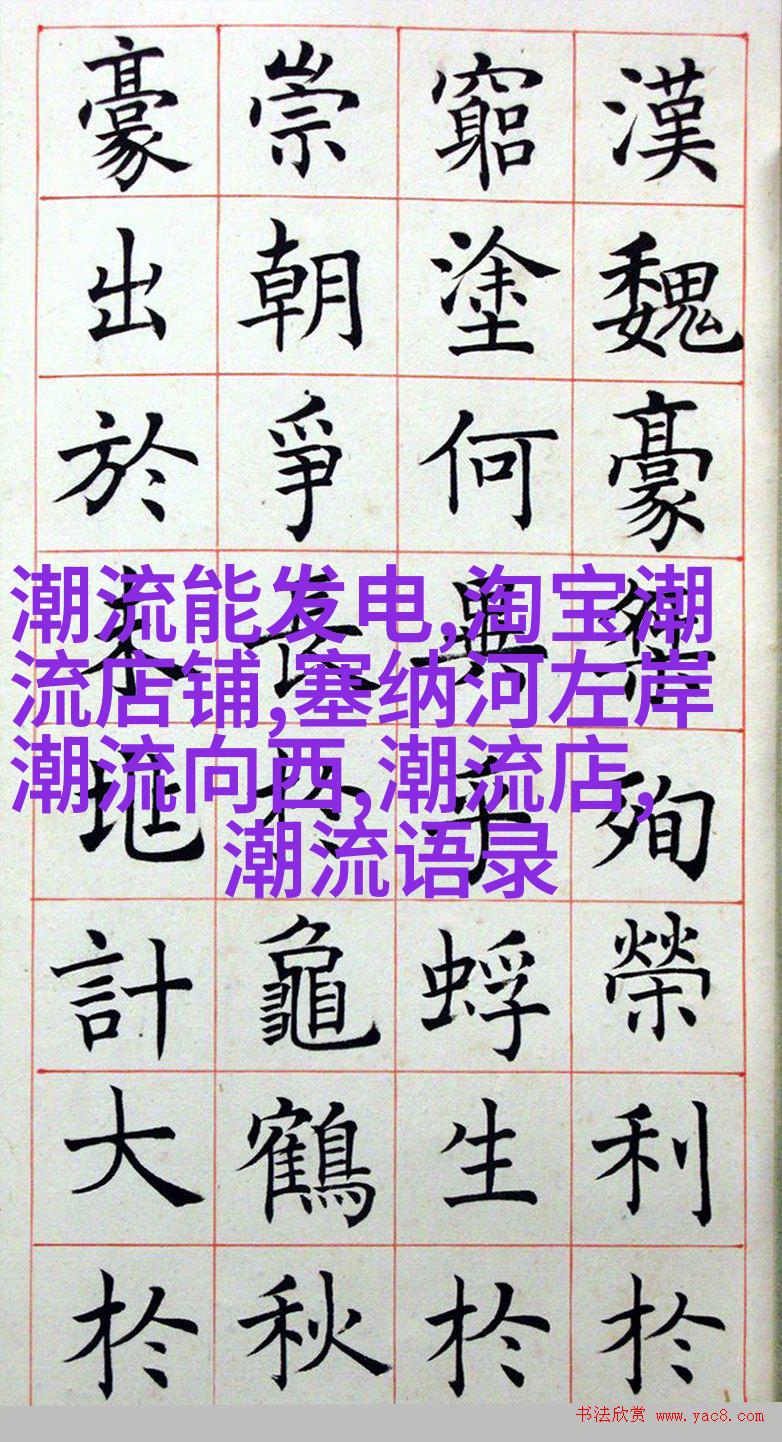 漢魏豪殉榮利於
窮塗何異乎蜉生於
崇朝爭長於龜鶴秋
豪出於計大於
潮流能发电,淘宝潮
流店铺,塞纳河左岸
潮流向西,潮流店,
潮流语录
书法欣赏 www.yac8.com